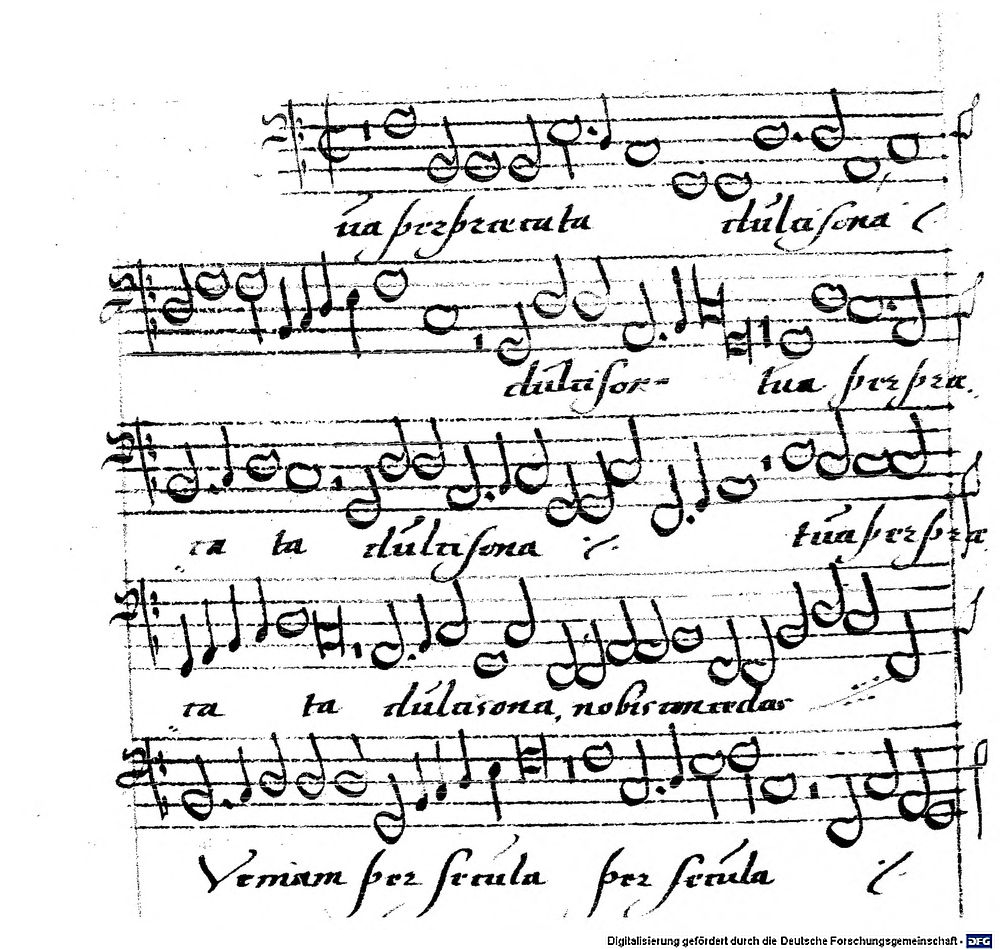 tua per precata dulcisona ⁒
dulcison- tua per pra.
ca ta dulcisona ⁒ tua per pra
ca ta dulcisona, nobis concedas
Veniam per secula per secula ⁒
Digitalisierung gefördert durch die Deutsche Forschungsgemeinschaft - DFG